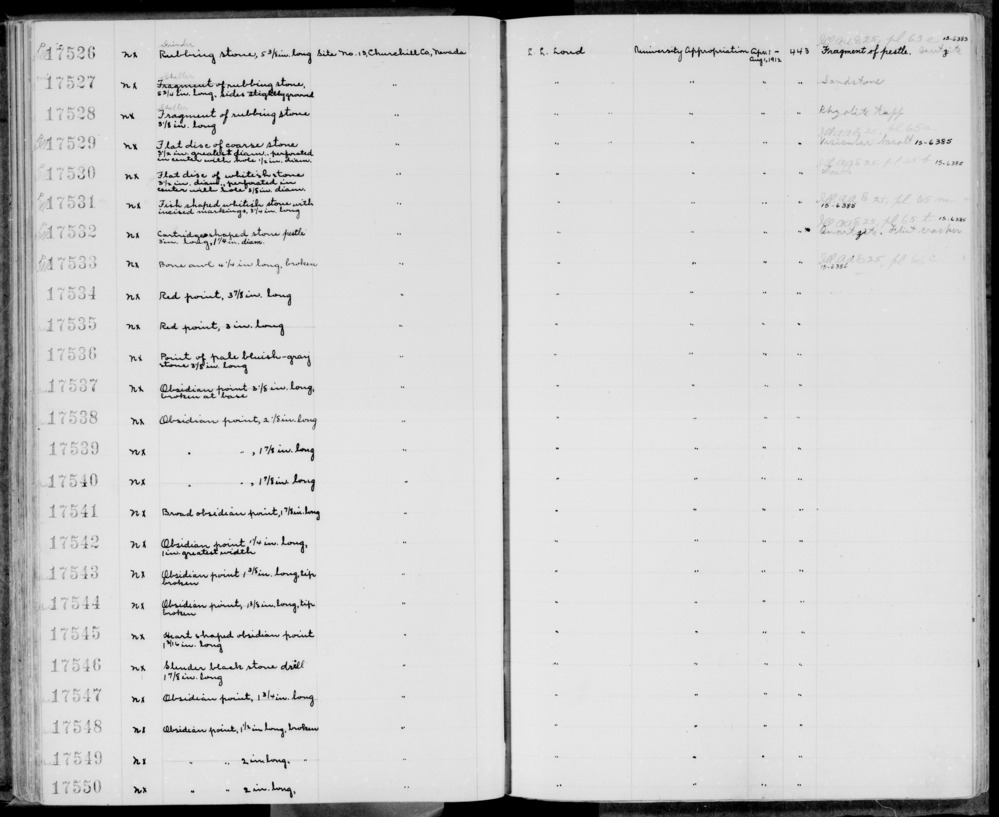 Grinder
17526 nx Rubbing stone, 5 3/8 in. long Site No. 13, Churchill Co, Nevada L. L. Loud University Appropriation Apr. 1 - Aug 1, 1912 443 Fragment of pestle. 15-6383
Sheller
17527 nx Fragment of rubbing stone, " " " " " Sandstone
5 3/4 in. long, sides slightly ground
Sheller
17528 nx Fragment of rubbing stone " " " " " Rhyolite Tuff
3 1/8 in. long
17529 nx Flat disc of coarse stone " " " " " Vesicular basalt 15-6385
3 1/2 in. greatest diam., perforated
in center with hole 1/2 in. diam.
17530 nx Flat disc of whitish stone " " " " " 15-6385
3 1/2 in. diam., perforated in
center with hole 3/8 in. diam.
17531 nx Fish shaped whitish stone with " " " " " 25, pl 65 m
incised markings, 3 1/4 in. long 15-6385
17532 nx Cartridge shaped stone pestle " " " " " 25, pl 65 t 15-6385
3 in. long, 1 1/4 in. diam. Quartzite. Flint cracker
17533 nx Bone awl 4 1/4 in long, broken " " " " "
15-6386
17534 nx Red point, 3 7/8 in. long " " " " "
17535 nx Red point, 3 in. long " " " " "
17536 nx Point of pale bluish-gray " " " " "
stone 3 1/8 in. long
17537 nx Obsidian point 3 1/8 in. long, " " " " "
broken at base
17538 nx Obsidian point, 2 1/8 in. long " " " " "
17539 nx " " , 1 7/8 in. long " " " " "
17540 nx " " , 1 7/8 in. long " " " " "
17541 nx Broad obsidian point, 1 7/8 in. long " " " " "
17542 nx Obsidian point, 1/4 in. long, " " " " "
1 in. greatest width
17543 nx Obsidian point 1 3/8 in. long, tip " " " " "
broken
17544 nx Obsidian point, 1 3/8 in. long, tip " " " " "
broken
17545 nx Heart shaped obsidian point " " " " "
in. long
17546 nx Slender black stone drill " " " " "
1 7/8 in. long
17547 nx Obsidian point, 1 3/4 in. long " " " " "
17548 nx Obsidian point, 1 1/2 in long, broken " " " " "
17549 nx " " 2 in long, " " " " " "
17550 nx " " 2 in. long, " " " " "